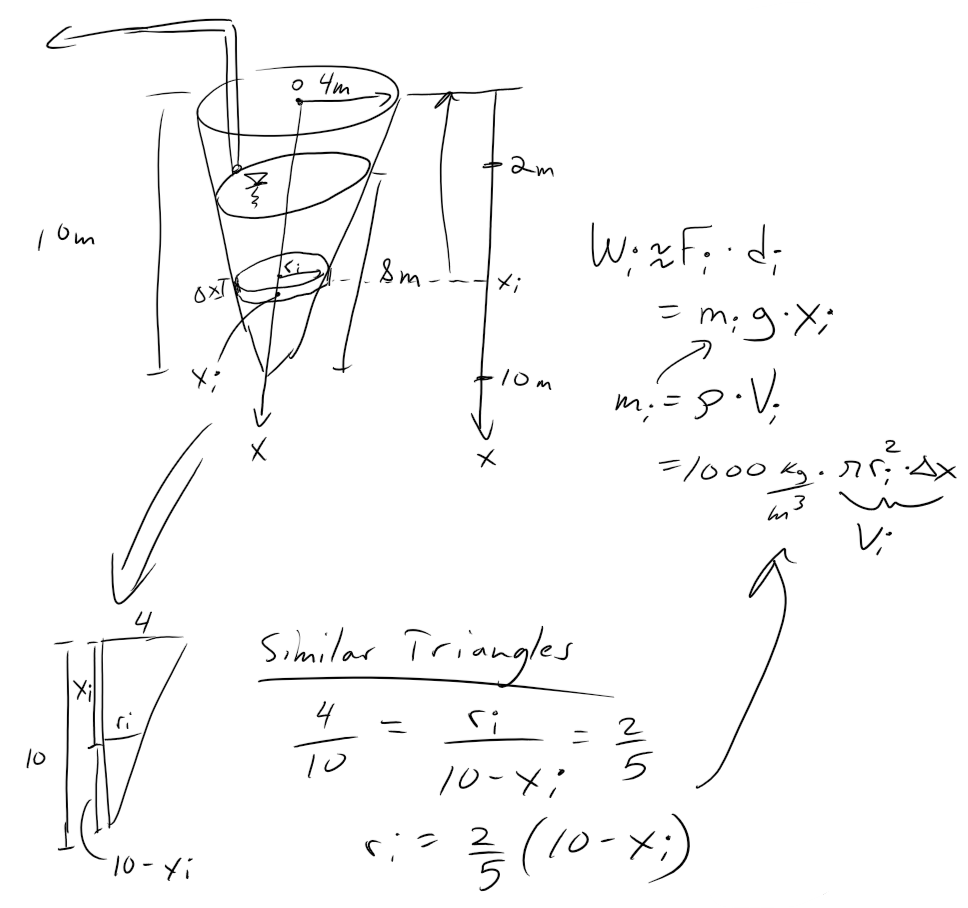 0 4m
2m
10m
ri
8m
Δx
xi
xi
10m
x
x
Wi ≈ Fi · di
= mi g · xi
mi = ρ · Vi
= 1000 kg/m³ · πri² · Δx
Vi
4
xi
ri
10
10 - xi
Similar Triangles
4/10 = ri/(10 - xi) = 2/5
ri = 2/5 (10 - xi)